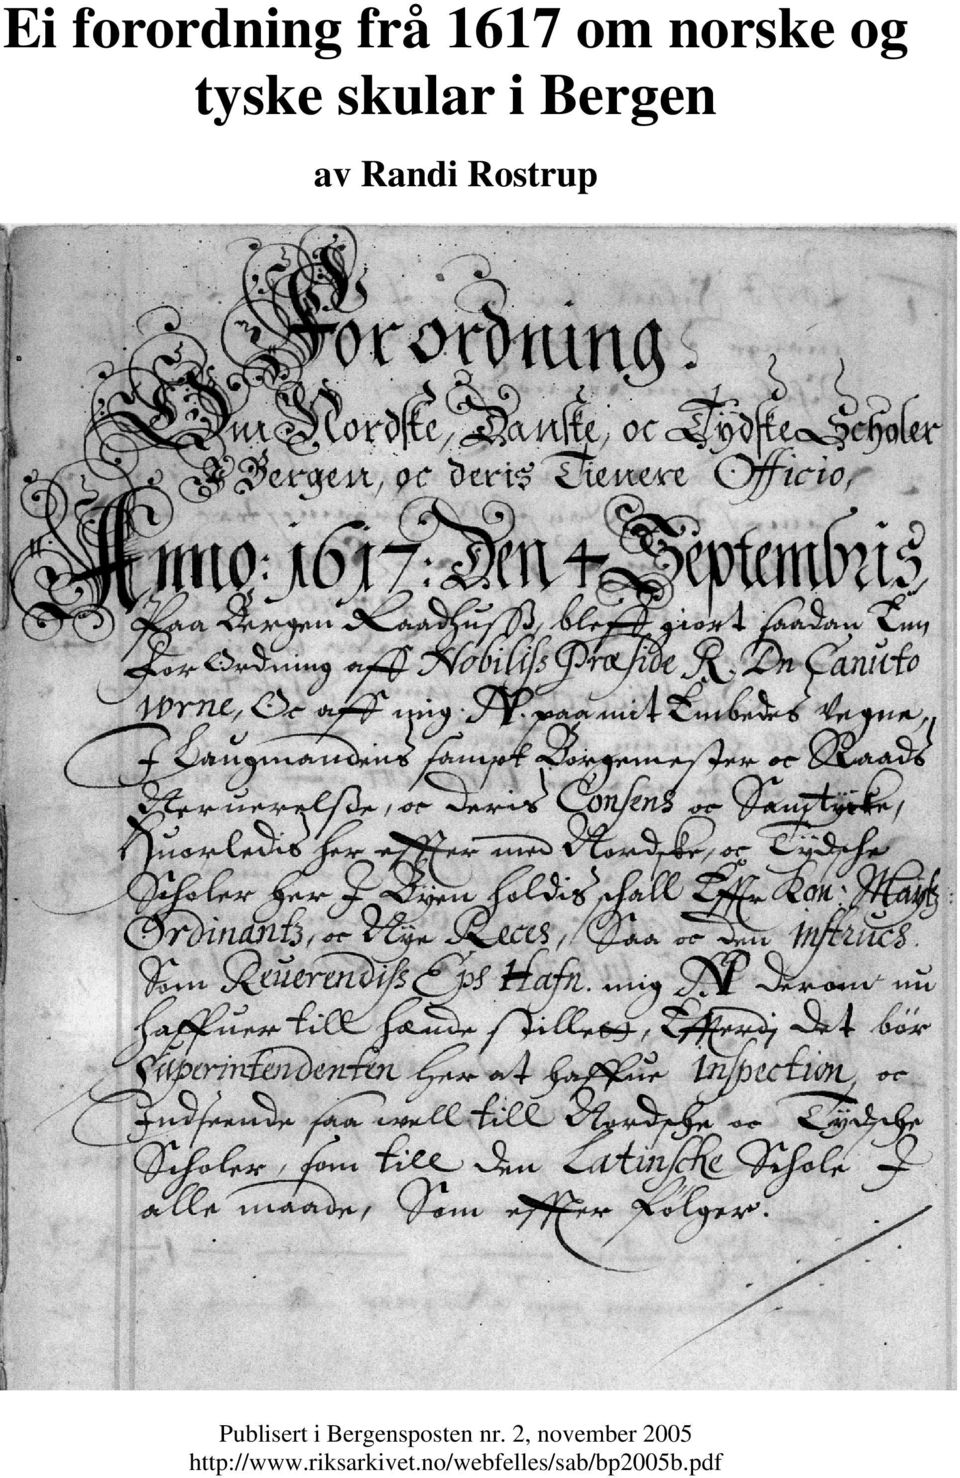 Ei forordning frå 1617 om norske og
tyske skular i Bergen
av Randi Rostrup
Forordning.
Om Nordske, Danske, oc Tydske Scholer
I Bergen, oc deris Tienere Officio,
Anno: 1617: Den 4 Septembris,
Paa Bergen Raadhuss, bleff giort saadan Enn
For Ordning aff Nobiliss Præside R. Dn Canuto
wrne, Oc aff mig N. paa mit Embedes vegne,
I Laugmandens sampt Borgemester oc Raads
Neruerelsse, oc deris Consens oc Samtycke,
Huorledis her effter med Nordske, oc Tydsche
Scholer her I Byen holdis schall Efftr Kon: Maytz:
Ordinantz, oc Nye Reces, Saa oc den Instrucs.
Som Reuerendiss Eps Hafn. mig derom nu
haffuer till hænde stillet, Efferdj det bör
Superintendenten her at haffue Inspection, oc
Indseende saa well till Nordsche oc Tydsche
Scholer, som till den Latinsche Schole I
alle maade, Som effter følger.
Publisert i Bergensposten nr. 2, november 2005
http://www.riksarkivet.no/webfelles/sab/bp2005b.pdf